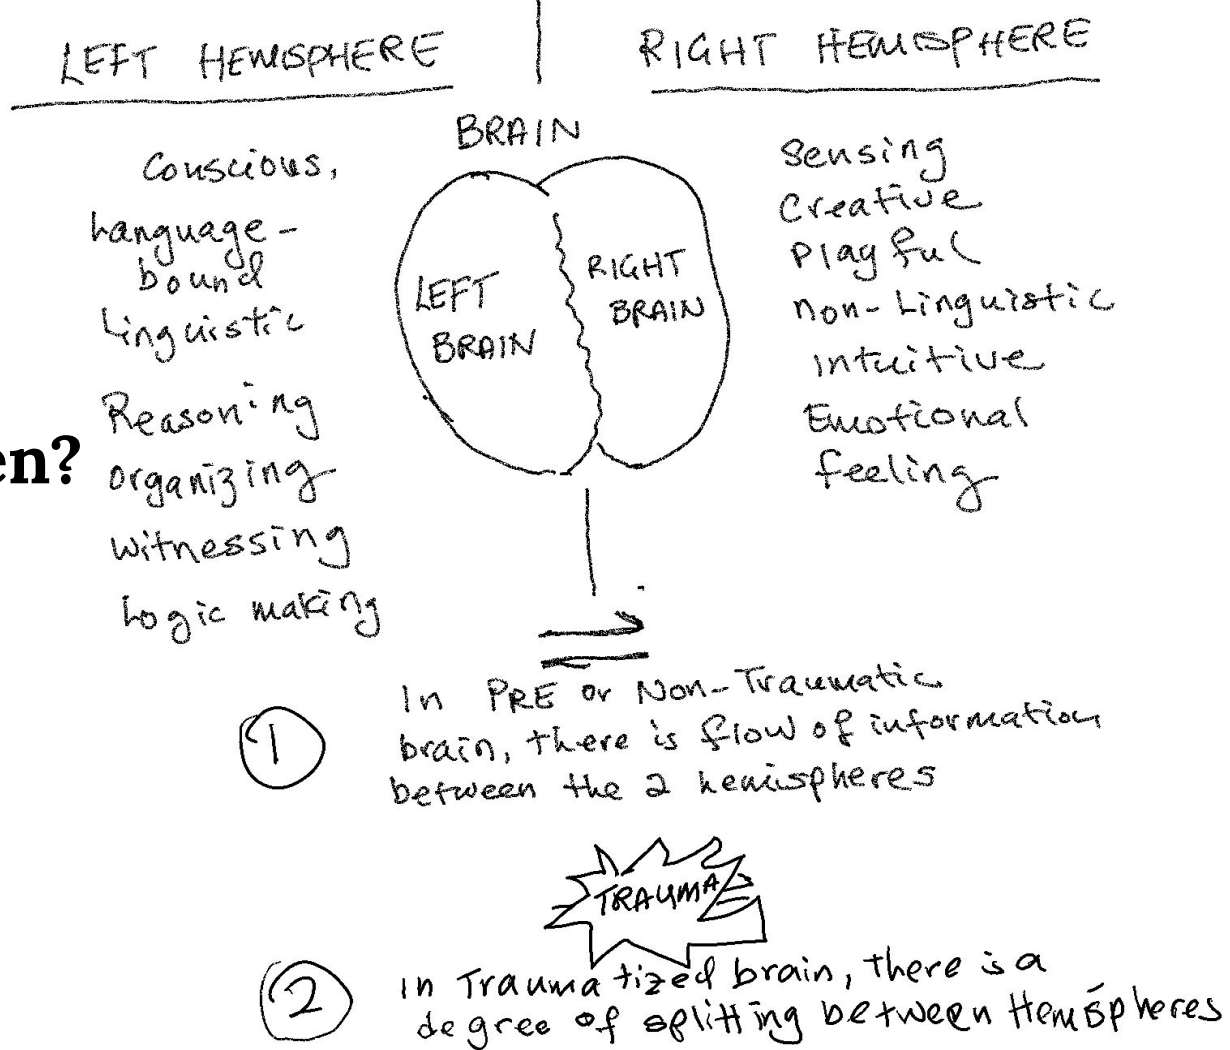 LEFT HEMISPHERE
RIGHT HEMISPHERE
BRAIN
Conscious,
Language-
bound
Linguistic
Reasoning
organizing
witnessing
Logic making
LEFT
BRAIN
RIGHT
BRAIN
Sensing
Creative
Playful
non-Linguistic
Intuitive
Emotional
feeling
en?
1
In PRE or Non-Traumatic
brain, there is flow of information
between the 2 hemispheres
TRAUMA
2
In Traumatized brain, there is a
degree of splitting between Hemispheres